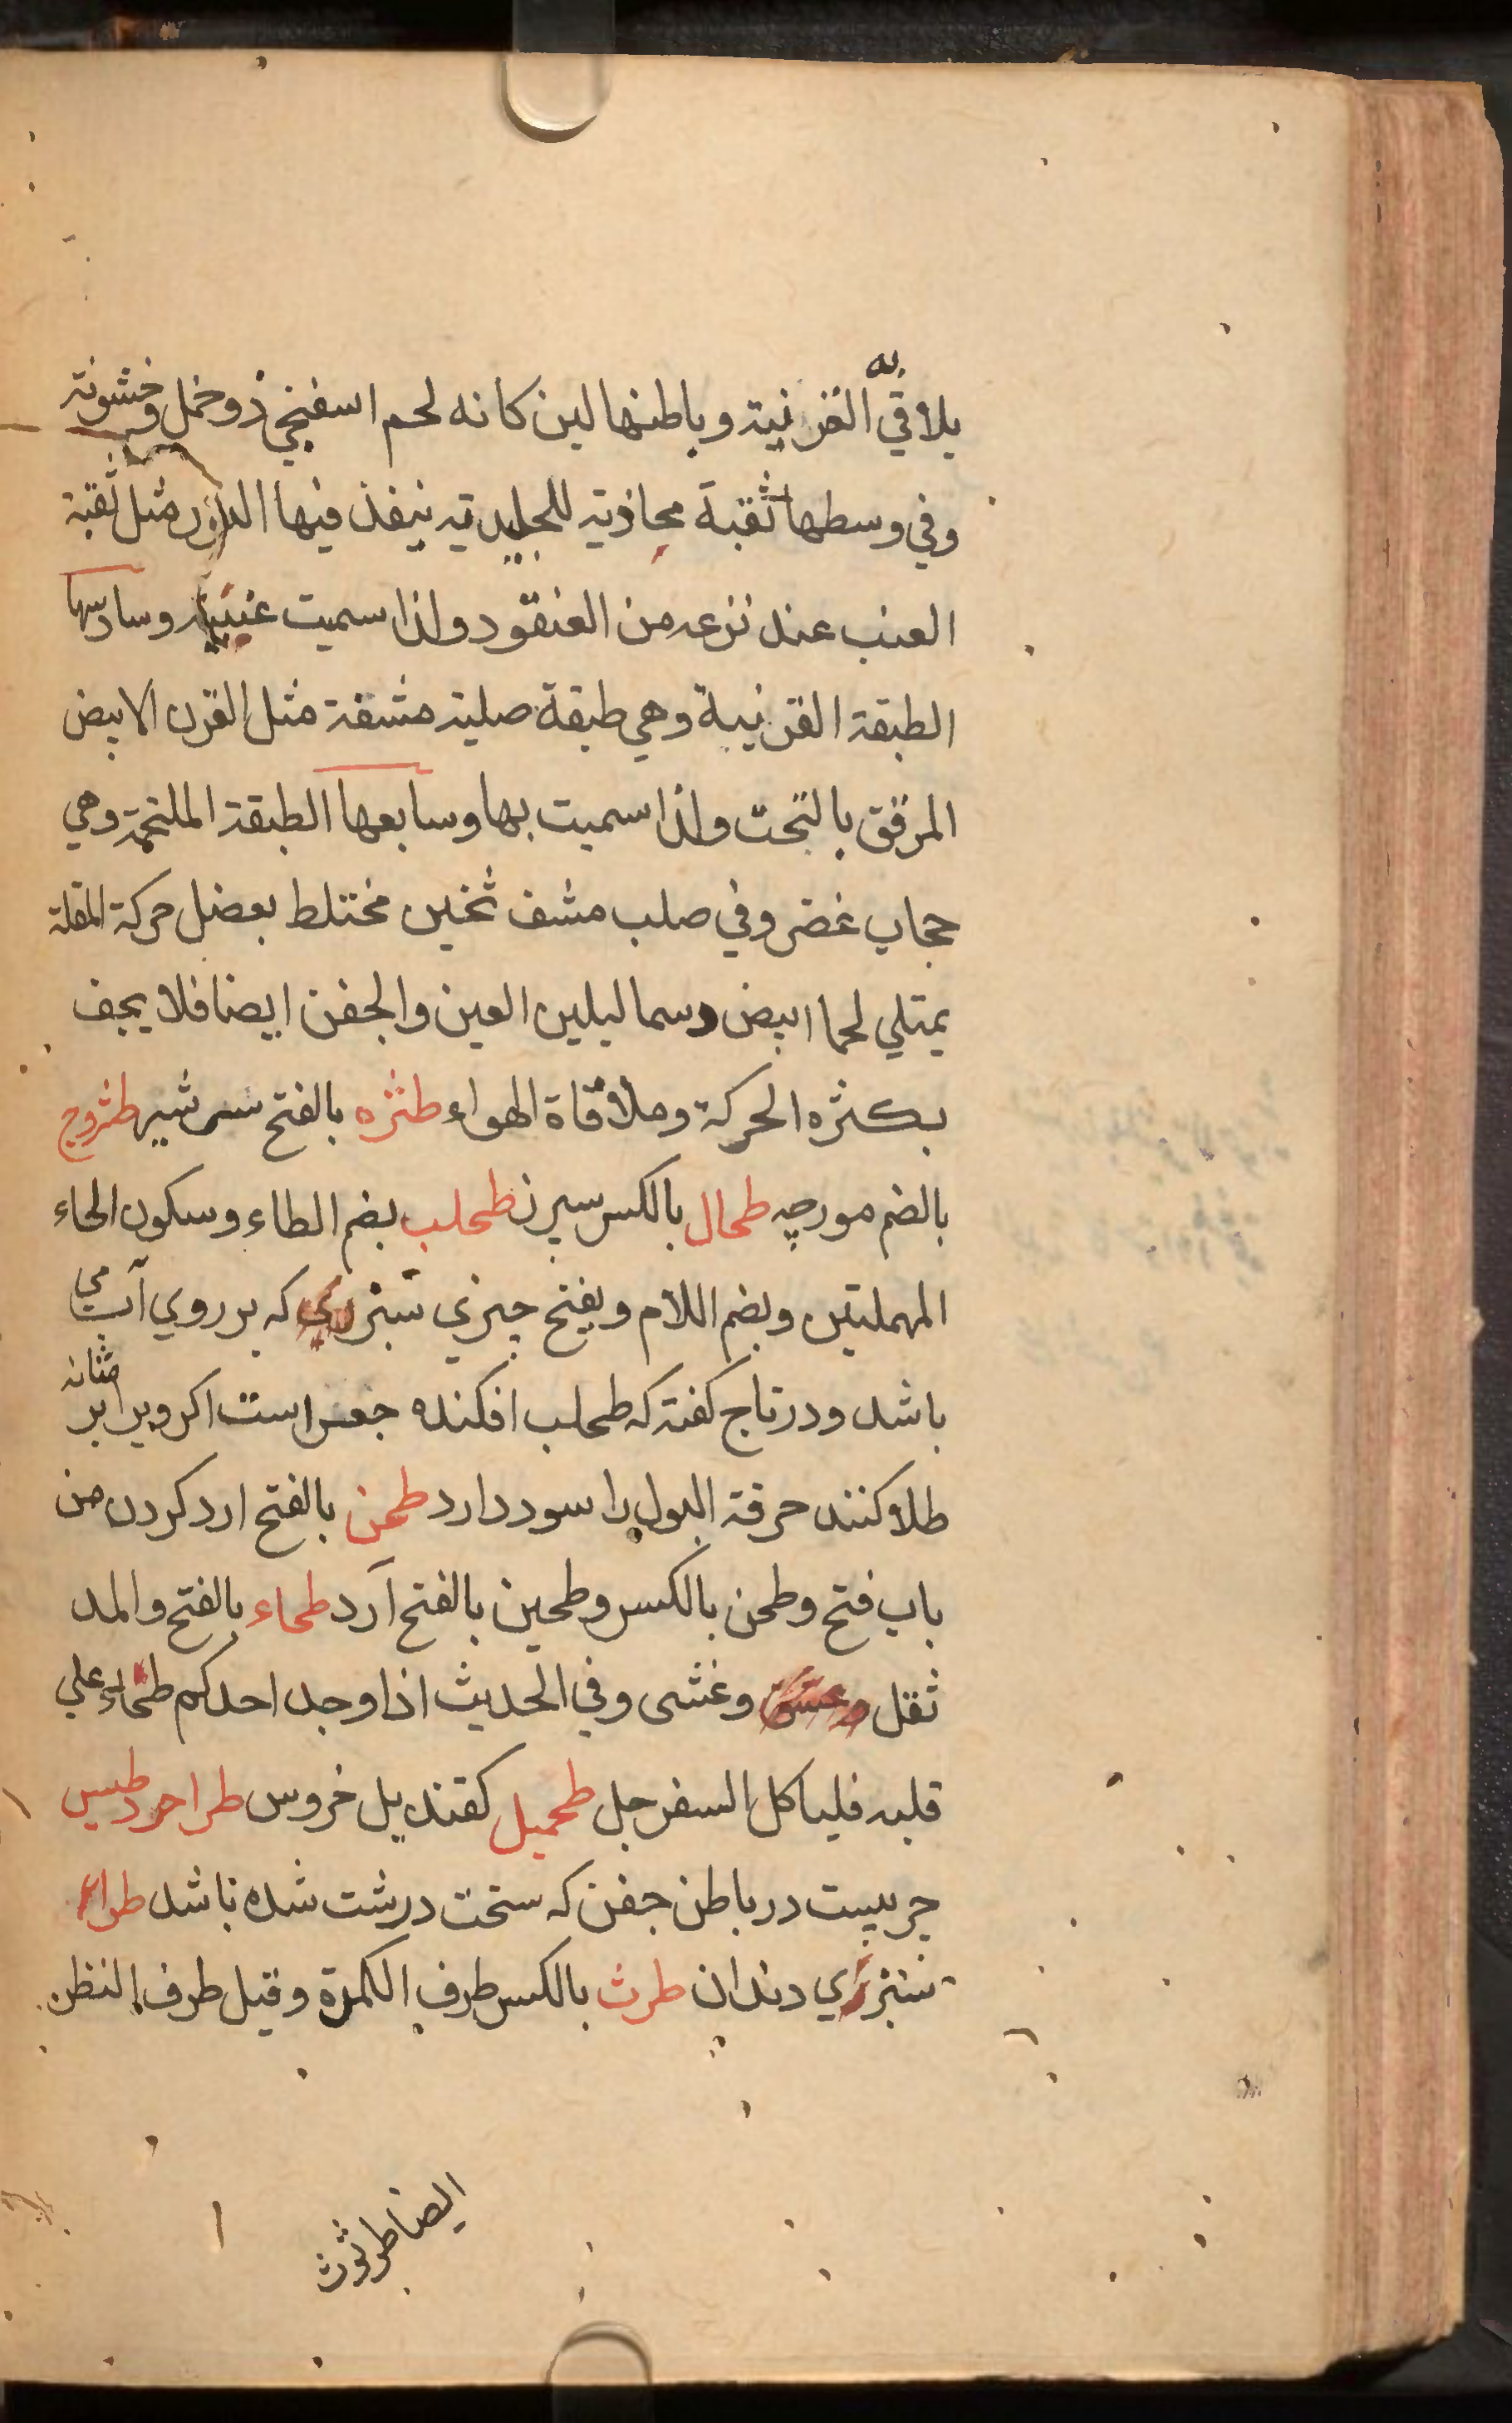 يلاقي به القرنية وباطنها لين كانه لحم اسفنجي ذو خمل وخشونة
وفي وسطها ثقبة محاذية للجليدية ينفذ فيها النور مثل ثقبة
العنب عند نزعه من العنقود ولذا سميت عنبية وسادسها
الطبقة القرنية وهي طبقة صلبة مشفة مثل القرن الابيض
المرقق بالنحت ولذا سميت بها وسابعها الطبقة الملتحمة وهي
حجاب غضروفي صلب مشف ثخين مختلط بعضل حركة المقلة
يمتلي لحما ابيض دسما ليلين العين والجفن ايضا فلا يجف
بكثره الحركة وملاقاة الهواء طثره بالفتح سر شير طثروج
بالضم مورچه طحال بالكسر سپرز طحلب بضم الطاء وسكون الحاء
المهملتين وبضم اللام ويفتح چيزي سبز كه بر روي آب مي
باشد ودر تاج كفته كه طحلب افكنده است اكر ويرا بر مثانه
طلا كنند حرقة البول را سود دارد طحن بالفتح ارد كردن من
باب فتح وطحن بالكسر وطحين بالفتح آرد طحاء بالفتح والمد
ثقل وغشى وفي الحديث اذا وجد احدكم طخاء علي
قلبه فلياكل السفرجل طحميل كقنديل خروس طراحرطيس
جربيست در باطن جفن كه سخت درشت شده باشد
سبزي دندان طرث بالكسر طرف الكمرة وقيل طرف البظر
ايضا طرثوث